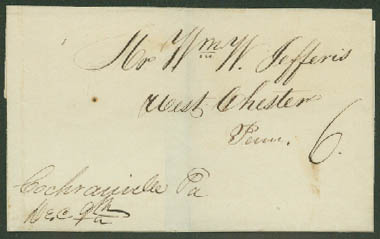 Mr Wm W. Jefferis
West Chester
Penn.
6.
Cochranville Pa
Dec 9th